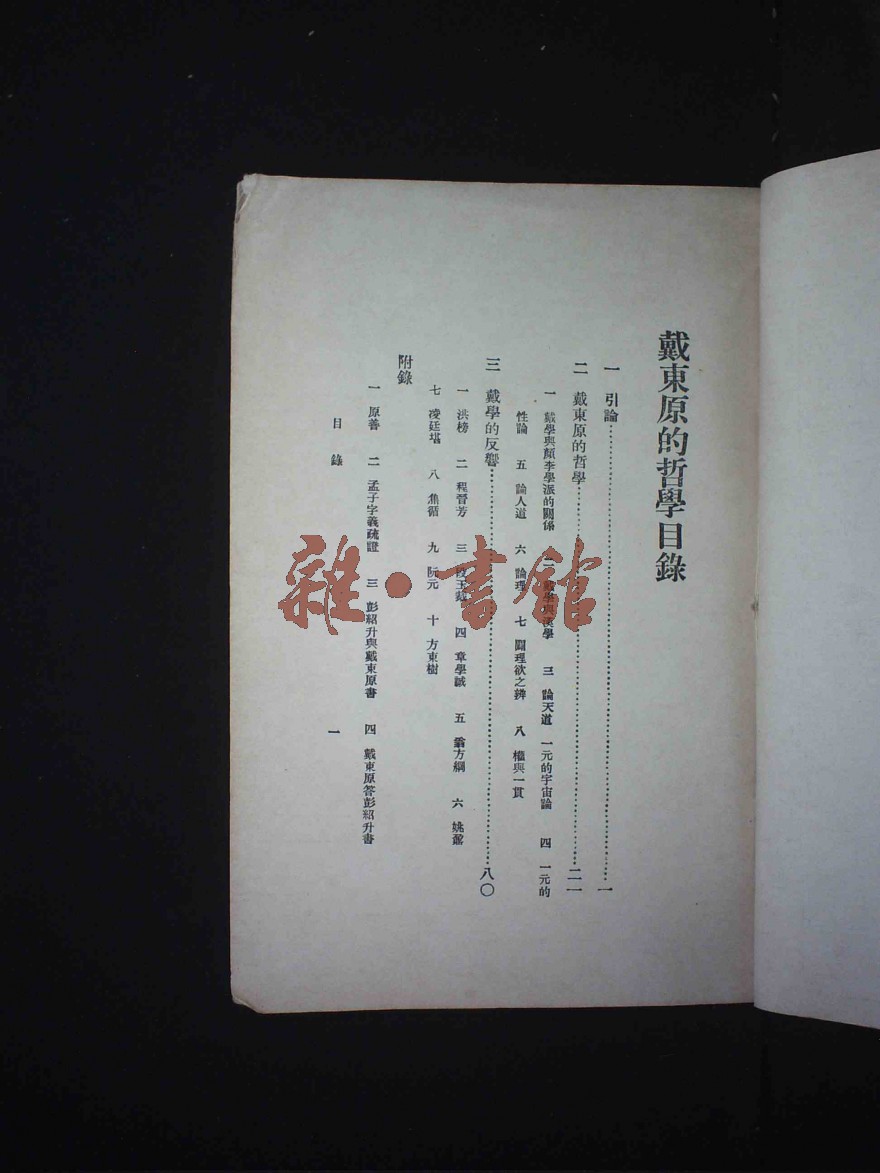 戴東原的哲學目錄
一 引論……………………一
二 戴東原的哲學……………………二一
一 戴學與顏李學派的關係 二 戴學與漢學 三 論天道 一元的宇宙論 四 一元的
性論 五 論人道 六 論理 七 闢理欲之辨 八 權與一貫
三 戴學的反響……………………八〇
一 洪榜 二 程晉芳 三 段玉裁 四 章學誠 五 翁方綱 六 姚鼐
七 凌廷堪 八 焦循 九 阮元 十 方東樹
附錄
一 原善 二 孟子字義疏證 三 彭紹升與戴東原書 四 戴東原答彭紹升書
目錄 一
雜·書館